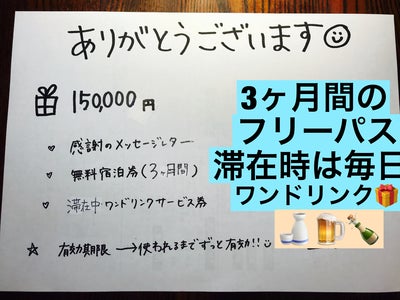 ありがとうございます
150,000円
感謝のメッセージレター
無料宿泊券(3ヶ月間)
滞在中ワンドリンクサービス券
有効期限→使われるまでずっと有効!!
3ヶ月間の
フリーパス
滞在時は毎日
ワンドリンク